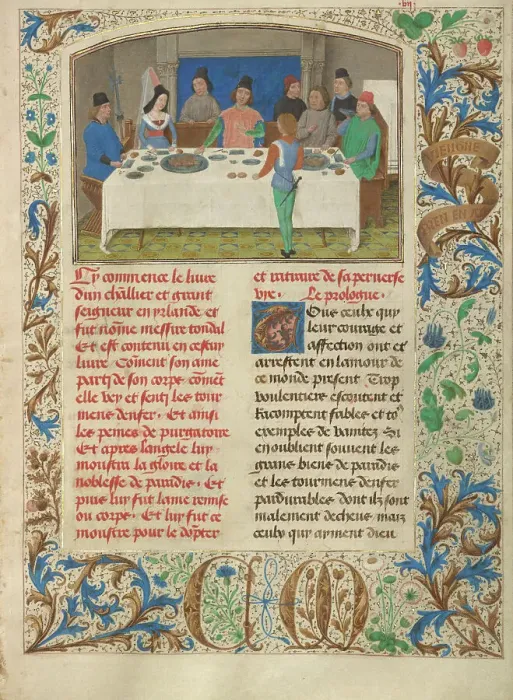 Cy commence le livre
dun chlĺlier et grant
seigneur en yrlande et
fut nōme messire tondal
Et est contenu en cestuy
livre. Cōment son ame
party de son corps. comēt
elle vey et senty les tour
mens denfer. Et ainsi
les peines de purgatoire
Et apres langele luy
moustra la gloire et la
noblesse de paradis. Et
puis luy fut lame remise
ou corps. Et luy fut ce
moustre pour le dōpter
et retraire de sa perverse
vye. Le prologue.
Ous ceulx quy
leur courage et
affection ont et
arrestent en lamour de
ce monde present Trop
voulentiers escoutent et
Racomptent fables et to9
exemples de vanitez Si
en oublient souvent les
grans biens de paradis
et les tourmens denfer
pardurables dont ilz sont
malement deceus. mais
ceulx quy ayment dieu
C M